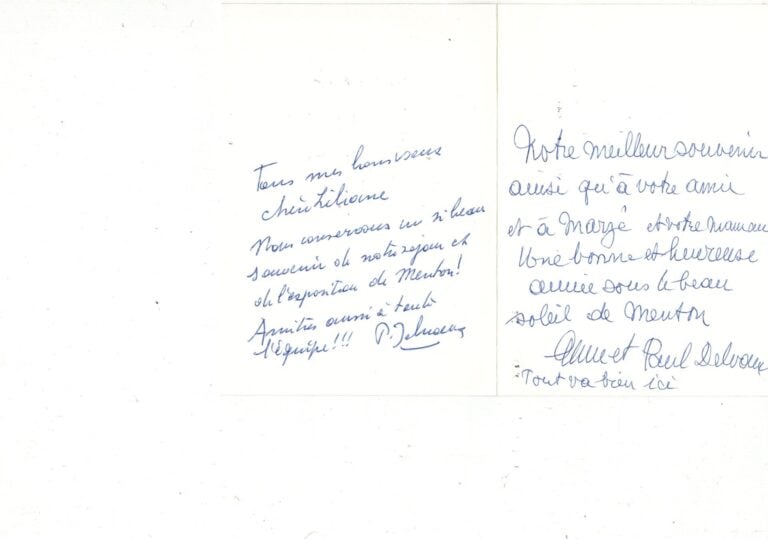 Tous mes bons vœux
chère Liliane
Nous conservons un si beau
souvenir de notre séjour et
de l'exposition de Menton!
Amitiés aussi à toute
l'équipe!!! P. Delvaux
Notre meilleur souvenir
ainsi qu'à votre amie
et à Margé et votre maman
Une bonne et heureuse
année sous le beau
soleil de Menton
et Paul Delvaux
Tout va bien ici